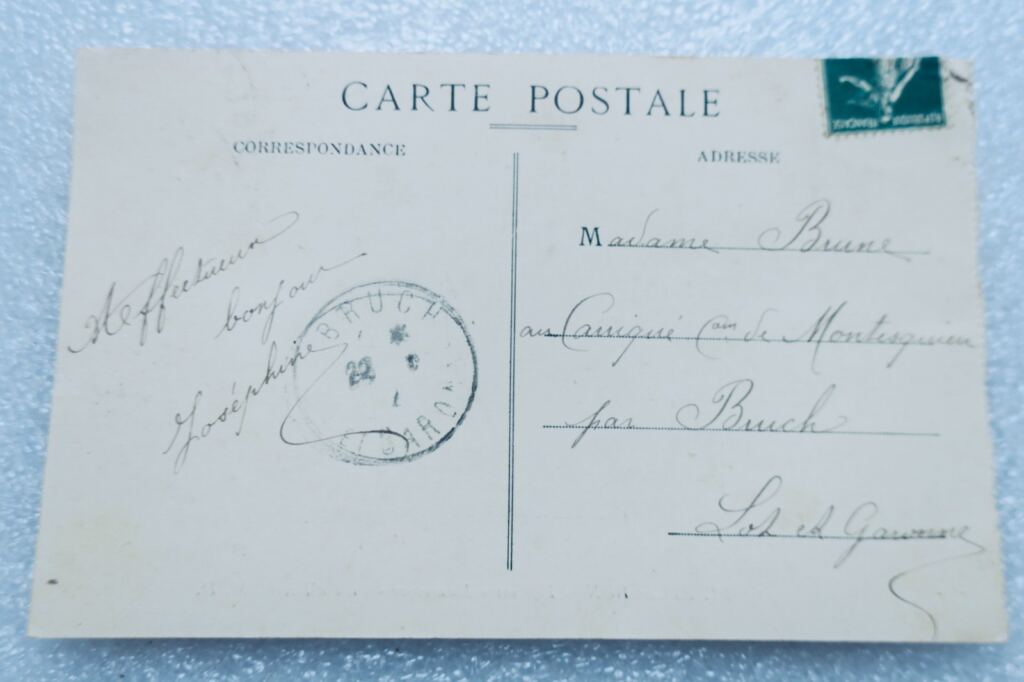 CARTE POSTALE
CORRESPONDANCE
ADRESSE
Affectueux
bonjour
Joséphine
BRUCH
22
GARON
Madame Brune
au Carriqué Cam de Montesquieu
par Bruch
Lot et Garonne
REPUBLIQUE FRANÇAISE